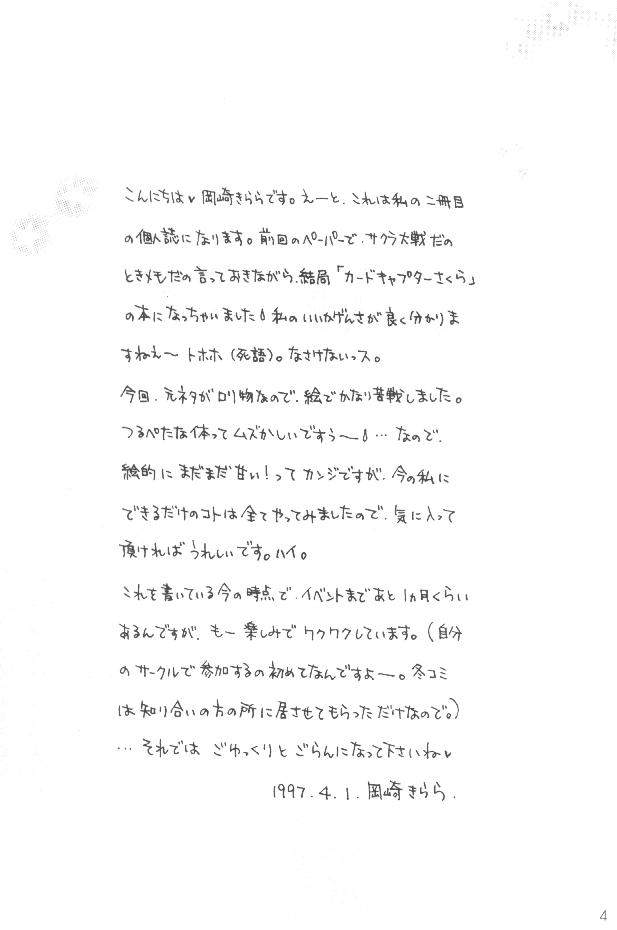 こんにちは♥岡崎きららです。えーと、これは私の二冊目
の個人誌になります。前回のペーパーで、サクラ大戦だの
ときメモだの言っておきながら、結局「カードキャプターさくら」
の本になっちゃいました。私のいいかげんさが良く分かりま
すねえ〜 トホホ（死語）。なさけないっス。
今回、元ネタがロリ物なので、絵でかなり苦戦しました。
つるぺたな体ってムズかしいですぅ〜。…なので、
絵的にまだまだ甘い！ってカンジですが、今の私に
できるだけのコトは全てやってみましたので、気に入って
頂ければうれしいです。ハイ。
これを書いている今の時点で、イベントまであと1ヵ月くらい
あるんですが、もー楽しみでワクワクしています。（自分
のサークルで参加するの初めてなんですよ〜。冬コミ
は知り合いの方の所に居させてもらっただけなので。）
…それでは ごゆっくりと ごらんになって下さいね♥
1997.4.1.岡崎きらら.
4